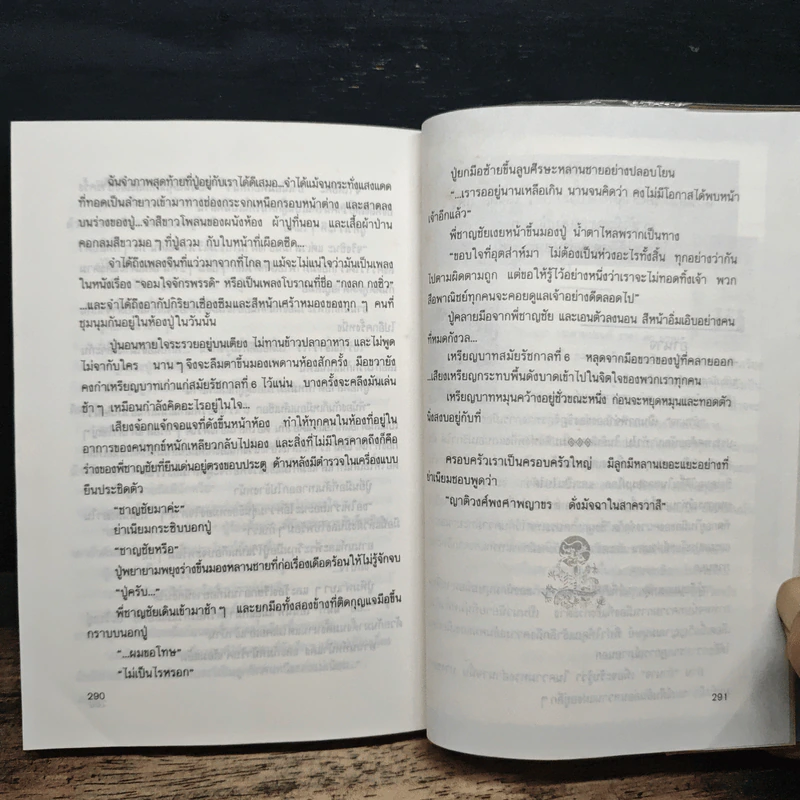 ฉันจำภาพสุดท้ายที่ปู่อยู่กับเราได้ดีเสมอ...จำได้แม้จนกระทั่งแสงแดด
ที่ทอดเป็นลำยาวเข้ามาทางช่องกระจกเหนือกรอบหน้าต่าง และสาดลง
บนร่างของปู่...จำสีขาวโพลนของผนังห้อง ผ้าปูที่นอน และเสื้อผ้าป่าน
คอกลมสีขาวมอ ๆ ที่ปู่สวม กับใบหน้าที่เผือดซีด...
จำได้ถึงเพลงจีนที่แว่วมาจากที่ไกล ๆ แม้จะไม่แน่ใจว่ามันเป็นเพลง
ในหนังเรื่อง “จอมใจจักรพรรดิ์” หรือเป็นเพลงโบราณที่ชื่อ “กงลก กงชิว”
...และจำได้ถึงอากัปกิริยาเซื่องซึมและสีหน้าเศร้าหมองของทุก ๆ คนที่
ชุมนุมกันอยู่ในห้องปู่ในวันนั้น
ปู่นอนหายใจระรวยอยู่บนเตียง ไม่ทานข้าวปลาอาหาร และไม่พูด
ไม่จากับใคร นาน ๆ จึงจะลืมตาขึ้นมองเพดานห้องสักครั้ง มือขวายัง
คงกำเหรียญบาทเก่าแก่สมัยรัชกาลที่ ๖ ไว้แน่น บางครั้งจะคลึงมันเล่น
ช้า ๆ เหมือนกำลังคิดอะไรอยู่ในใจ...
เสียงจ้อกแจ้กจอแจที่ดังขึ้นหน้าห้อง ทำให้ทุกคนในห้องที่อยู่ใน
อาการของคนทุกข์หนักเหลียวกลับไปมอง และสิ่งที่ไม่มีใครคาดถึงก็คือ
ร่างของพี่ชาญชัยที่ยืนเด่นอยู่ตรงขอบประตู ด้านหลังมีตำรวจในเครื่องแบบ
ยืนประชิดตัว
“ชาญชัยมาค่ะ”
ย่าเนียมกระซิบบอกปู่
“ชาญชัยหรือ”
ปู่พยายามพยุงร่างขึ้นมองหลานชายที่ก่อเรื่องเดือดร้อนให้ไม่รู้จักจบ
“ปู่ครับ...”
พี่ชาญชัยเดินเข้ามาช้า ๆ และยกมือทั้งสองข้างที่ติดกุญแจมือขึ้น
กราบบนอกปู่
“...ผมขอโทษ”
“ไม่เป็นไรหรอก”
290
ปู่ยกมือซ้ายขึ้นลูบศีรษะหลานชายอย่างปลอบโยน
“...เรารออยู่นานเหลือเกิน นานจนคิดว่า คงไม่มีโอกาสได้พบหน้า
เจ้าอีกแล้ว”
พี่ชาญชัยเงยหน้าขึ้นมองปู่ น้ำตาไหลพรากเป็นทาง
“ขอบใจที่อุตส่าห์มา ไม่ต้องเป็นห่วงอะไรทั้งสิ้น ทุกอย่างว่ากัน
ไปตามผิดตามถูก แต่ขอให้รู้ไว้อย่างหนึ่งว่าเราจะไม่ทอดทิ้งเจ้า พวก
สือพาณิชย์ทุกคนจะคอยดูแลเจ้าอย่างดีตลอดไป”
ปู่คลายมือจากพี่ชาญชัย และเอนตัวลงนอน สีหน้าอิ่มเอิบอย่างคน
ที่หมดกังวล...
เหรียญบาทสมัยรัชกาลที่ ๖ หลุดจากมือขวาของปู่ที่คลายออก
...เสียงเหรียญกระทบพื้นดังบาดเข้าไปในจิตใจของพวกเราทุกคน
เหรียญบาทหมุนคว้างอยู่ชั่วขณะหนึ่ง ก่อนจะหยุดหมุนและทอดตัว
นิ่งสงบอยู่กับที่
ครอบครัวเราเป็นครอบครัวใหญ่ มีลูกมีหลานเยอะแยะอย่างที่
ย่าเนียมชอบพูดว่า
“ญาติวงศ์พงศาพญาขร ดั่งมัจฉาในสาครวาสี”
291